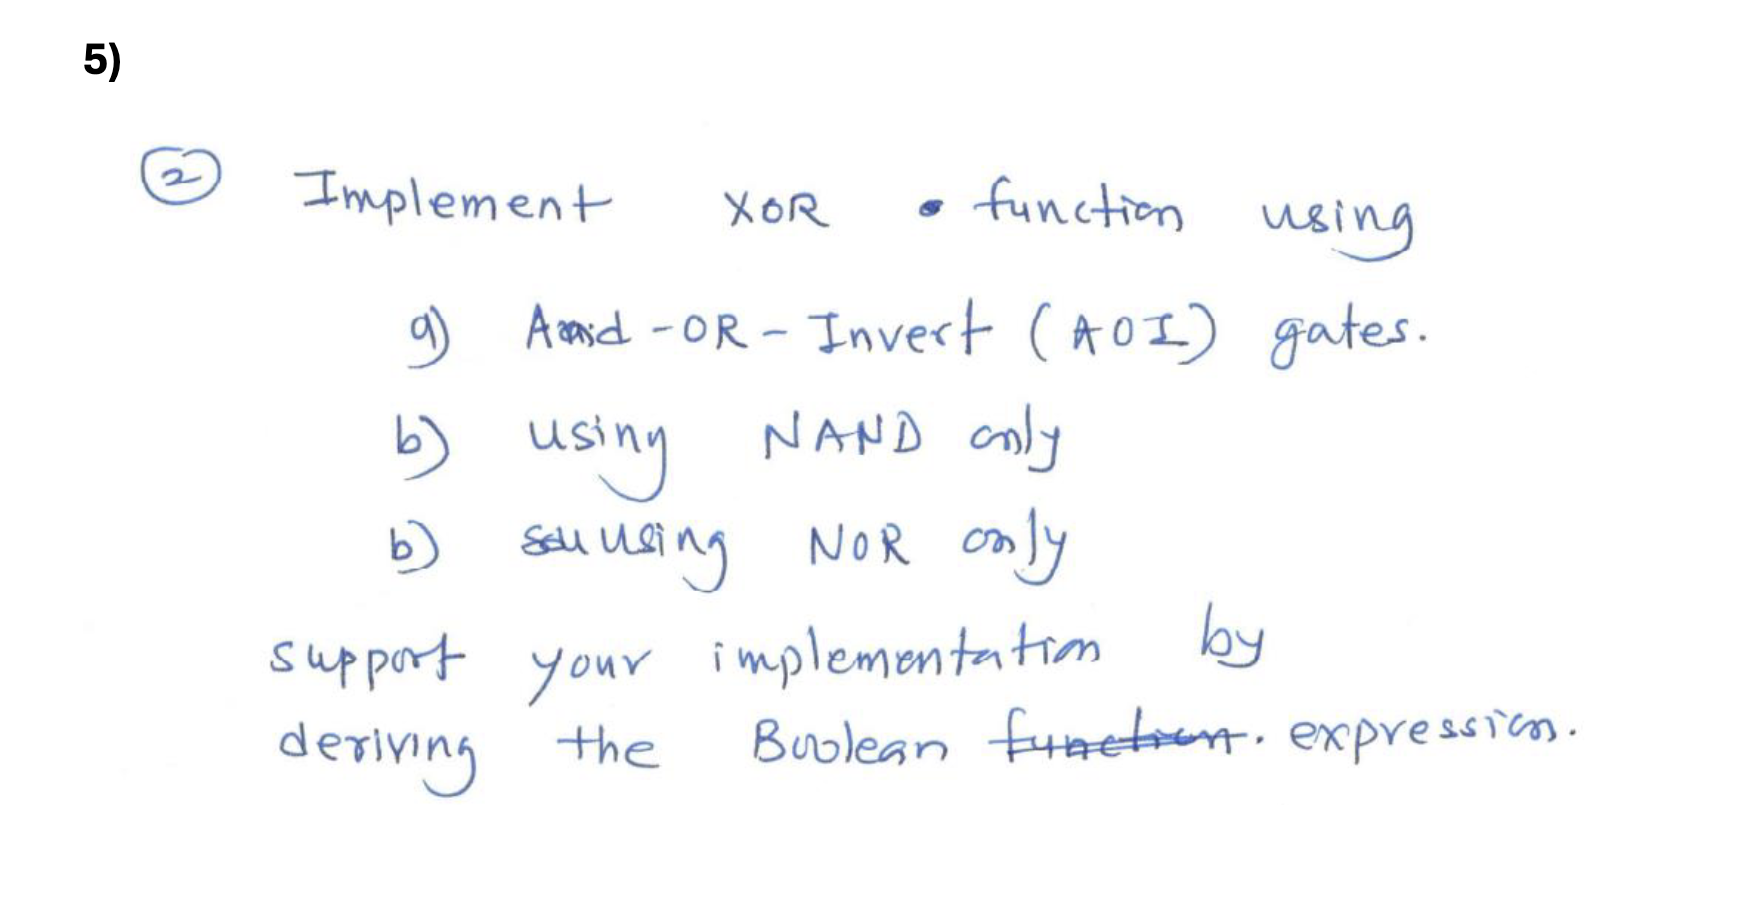 5)
2 Implement XOR function using
a) And-OR-Invert (AOI) gates.
b) using NAND only
b) using NOR only
support your implementation by
deriving the Boolean function. expression.